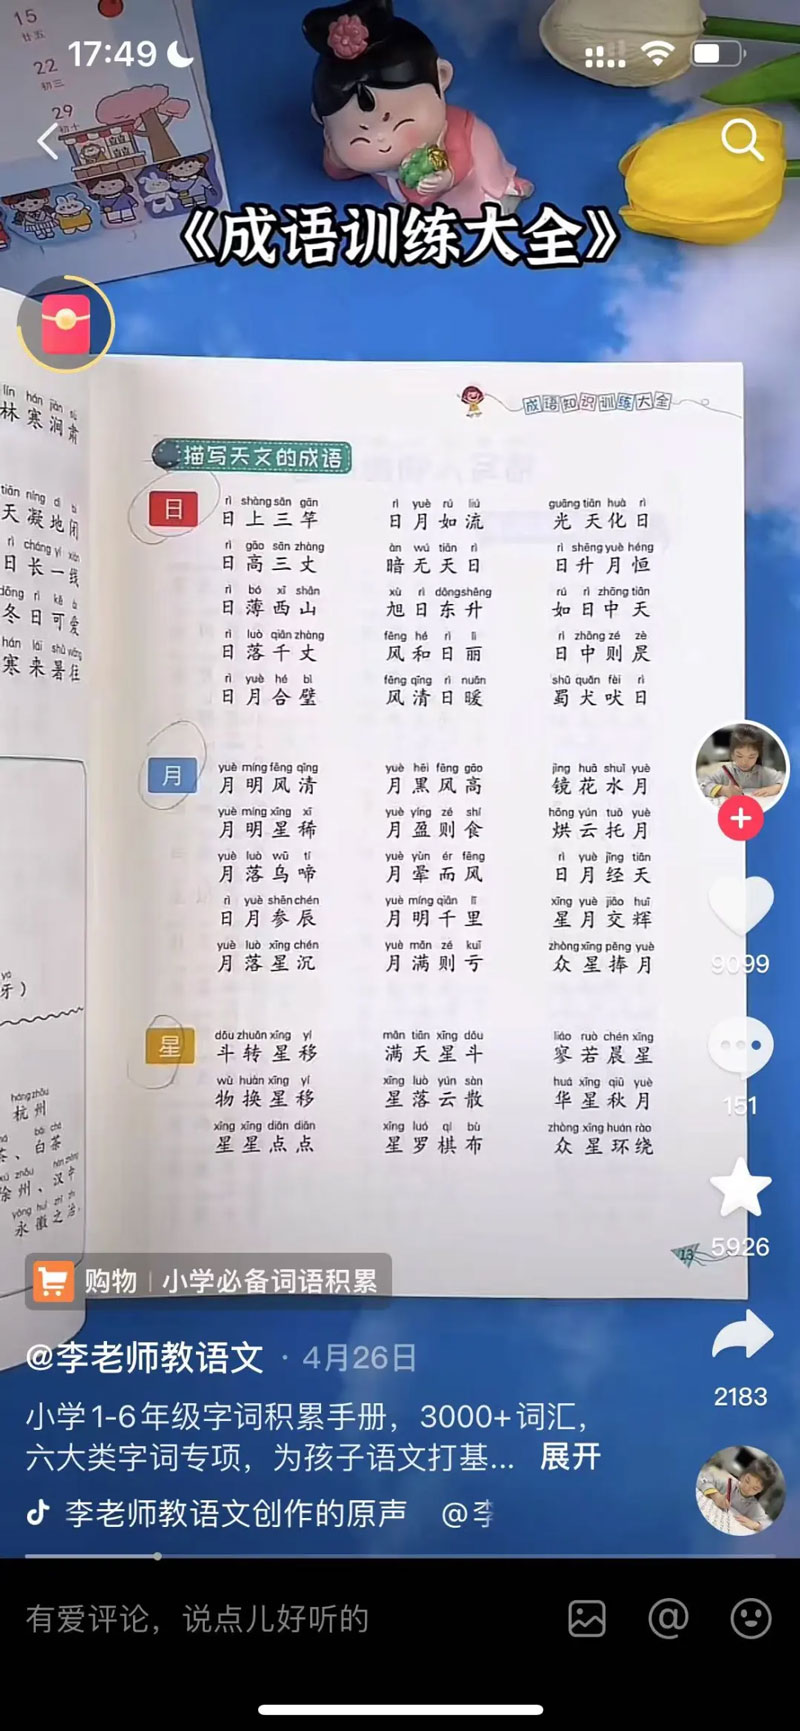 15
廿五
22
初三
29
初十
17:49
《成语训练大全》
lín hán jiàn sù
林寒涧肃
tiān níng dì bì
天凝地闭
rì cháng yí xiàn
日长一线
dōng rì kě ài
冬日可爱
hán lái shǔ wǎng
寒来暑往
牙）
hángzhōu
杭州
bái chá
茶、白茶
xú zhōu
徐州、汉中
yǒng huī zhī zhì
永徽之治
成语知识训练大全
描写天文的成语
日
rì shàng sān gān
日上三竿
rì yuè rú liú
日月如流
guāng tiān huà rì
光天化日
rì gāo sān zhàng
日高三丈
àn wú tiān rì
暗无天日
rì shēng yuè héng
日升月恒
rì bó xī shān
日薄西山
xù rì dōng shēng
旭日东升
rú rì zhōng tiān
如日中天
rì luò qiān zhàng
日落千丈
fēng hé rì lì
风和日丽
rì zhōng zé zè
日中则昃
rì yuè hé bì
日月合璧
fēng qīng rì nuǎn
风清日暖
shǔ quǎn fèi rì
蜀犬吠日
月
yuè míng fēng qīng
月明风清
yuè hēi fēng gāo
月黑风高
jìng huā shuǐ yuè
镜花水月
yuè míng xīng xī
月明星稀
yuè yíng zé shí
月盈则食
hōng yún tuō yuè
烘云托月
yuè luò wū tí
月落乌啼
yuè yùn ér fēng
月晕而风
rì yuè jīng tiān
日月经天
rì yuè shēn chén
日月参辰
yuè míng qiān lǐ
月明千里
xīng yuè jiāo huī
星月交辉
yuè luò xīng chén
月落星沉
yuè mǎn zé kuī
月满则亏
zhòng xīng pěng yuè
众星捧月
星
dǒu zhuǎn xīng yí
斗转星移
mǎn tiān xīng dǒu
满天星斗
liáo ruò chén xīng
寥若晨星
wù huàn xīng yí
物换星移
xīng luò yún sàn
星落云散
huá xīng qiū yuè
华星秋月
xīng xīng diǎn diǎn
星星点点
xīng luó qí bù
星罗棋布
zhòng xīng huán rào
众星环绕
13
9099
151
5926
2183
购物 | 小学必备词语积累
@李老师教语文 · 4月26日
小学1-6年级字词积累手册，3000+词汇，
六大类字词专项，为孩子语文打基... 展开
李老师教语文创作的原声 @李
有爱评论，说点儿好听的